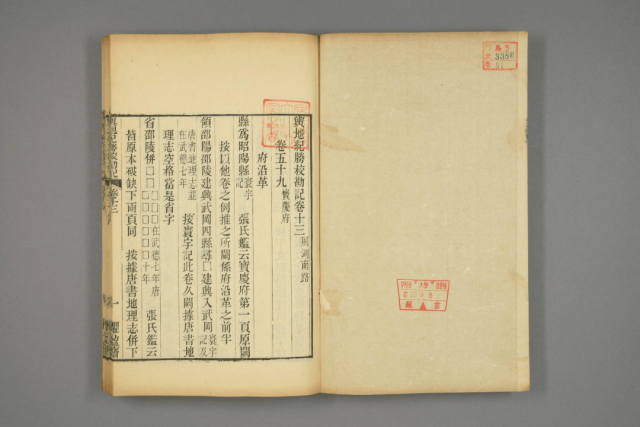 輿地紀勝校勘記卷十三 荆湖南路
卷五十九 寶慶府
府沿革
縣爲昭陽縣 寰宇記 張氏鑑云寶慶府第一頁原闕
按以他卷之例推之所闕係府沿革之前半
領邵陽邵陵建興武岡四縣尋□建興入武岡 寰宇記及
唐書地理志並在武德七年 按寰宇記此卷久闕據唐書地
理志空格當是省字
省邵陵併□□ □□□在武德七年唐□□□□□□十年 張氏鑑云
皆原本破缺下兩頁同 按據唐書地理志併下